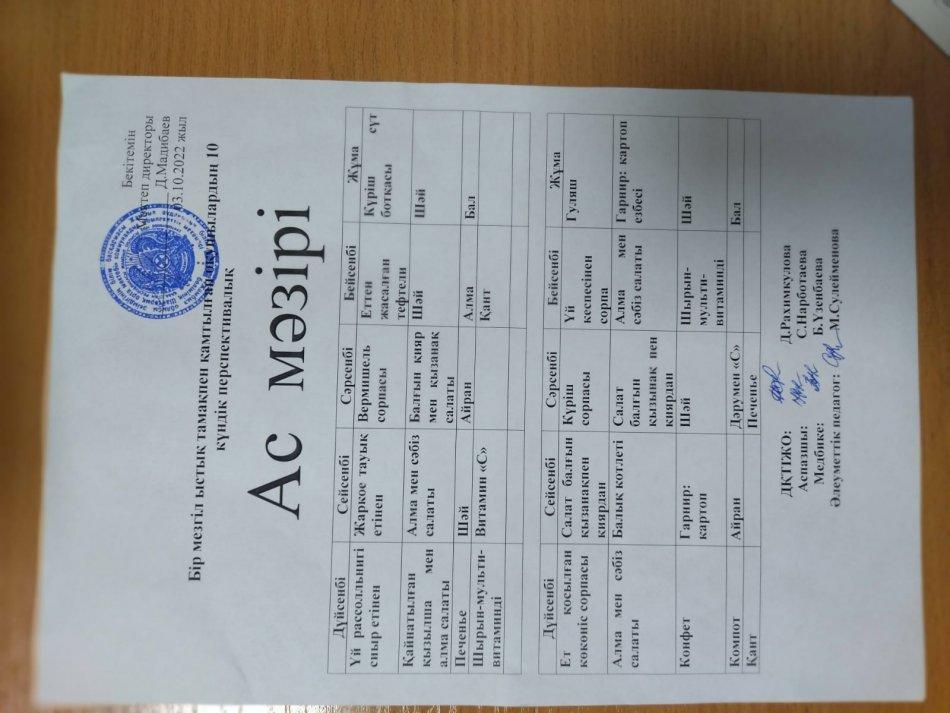 Бекітемін
Мектеп директоры
Д.Мадибаев
03.10.2022 жыл
Бір мезгіл ыстық тамақпен қамтылған оқушылардың 10
күндік перспективалық
Ас мәзірі
Дүйсенбі Сейсенбі Сәрсенбі Бейсенбі Жұма
Үй рассолльнигі сиыр етінен
Жаркое тауық етінен
Вермишель сорпасы
Еттен жасалған тефтели
Күріш сүт ботқасы
Қайнатылған қызылша мен алма салаты
Алма мен сәбіз салаты
Балғын қияр мен қызанақ салаты
Шәй
Шәй
Печенье
Шәй
Айран
Алма
Бал
Шырын-мульти-витаминді
Витамин «С»
Қант
Дүйсенбі Сейсенбі Сәрсенбі Бейсенбі Жұма
Ет қосылған көкөніс сорпасы
Салат балғын қызанақпен киярдан
Күріш сорпасы
Үй кеспесінен сорпа
Гуляш
Алма мен сәбіз салаты
Балық котлеті
Салат балғын қызынақ пен киярдан
Алма мен сәбіз салаты
Гарнир: картоп езбесі
Конфет
Гарнир: картоп
Шәй
Шырын-мульти-витаминді
Шәй
Компот
Айран
Дәрумен «С»
Бал
Қант
Печенье
ДКТІЖО: Д.Рахимкулова
Аспазшы: С.Нарботаева
Медбике: Б.Үзенбаева
Әлеуметтік педагог: М.Сулейменова